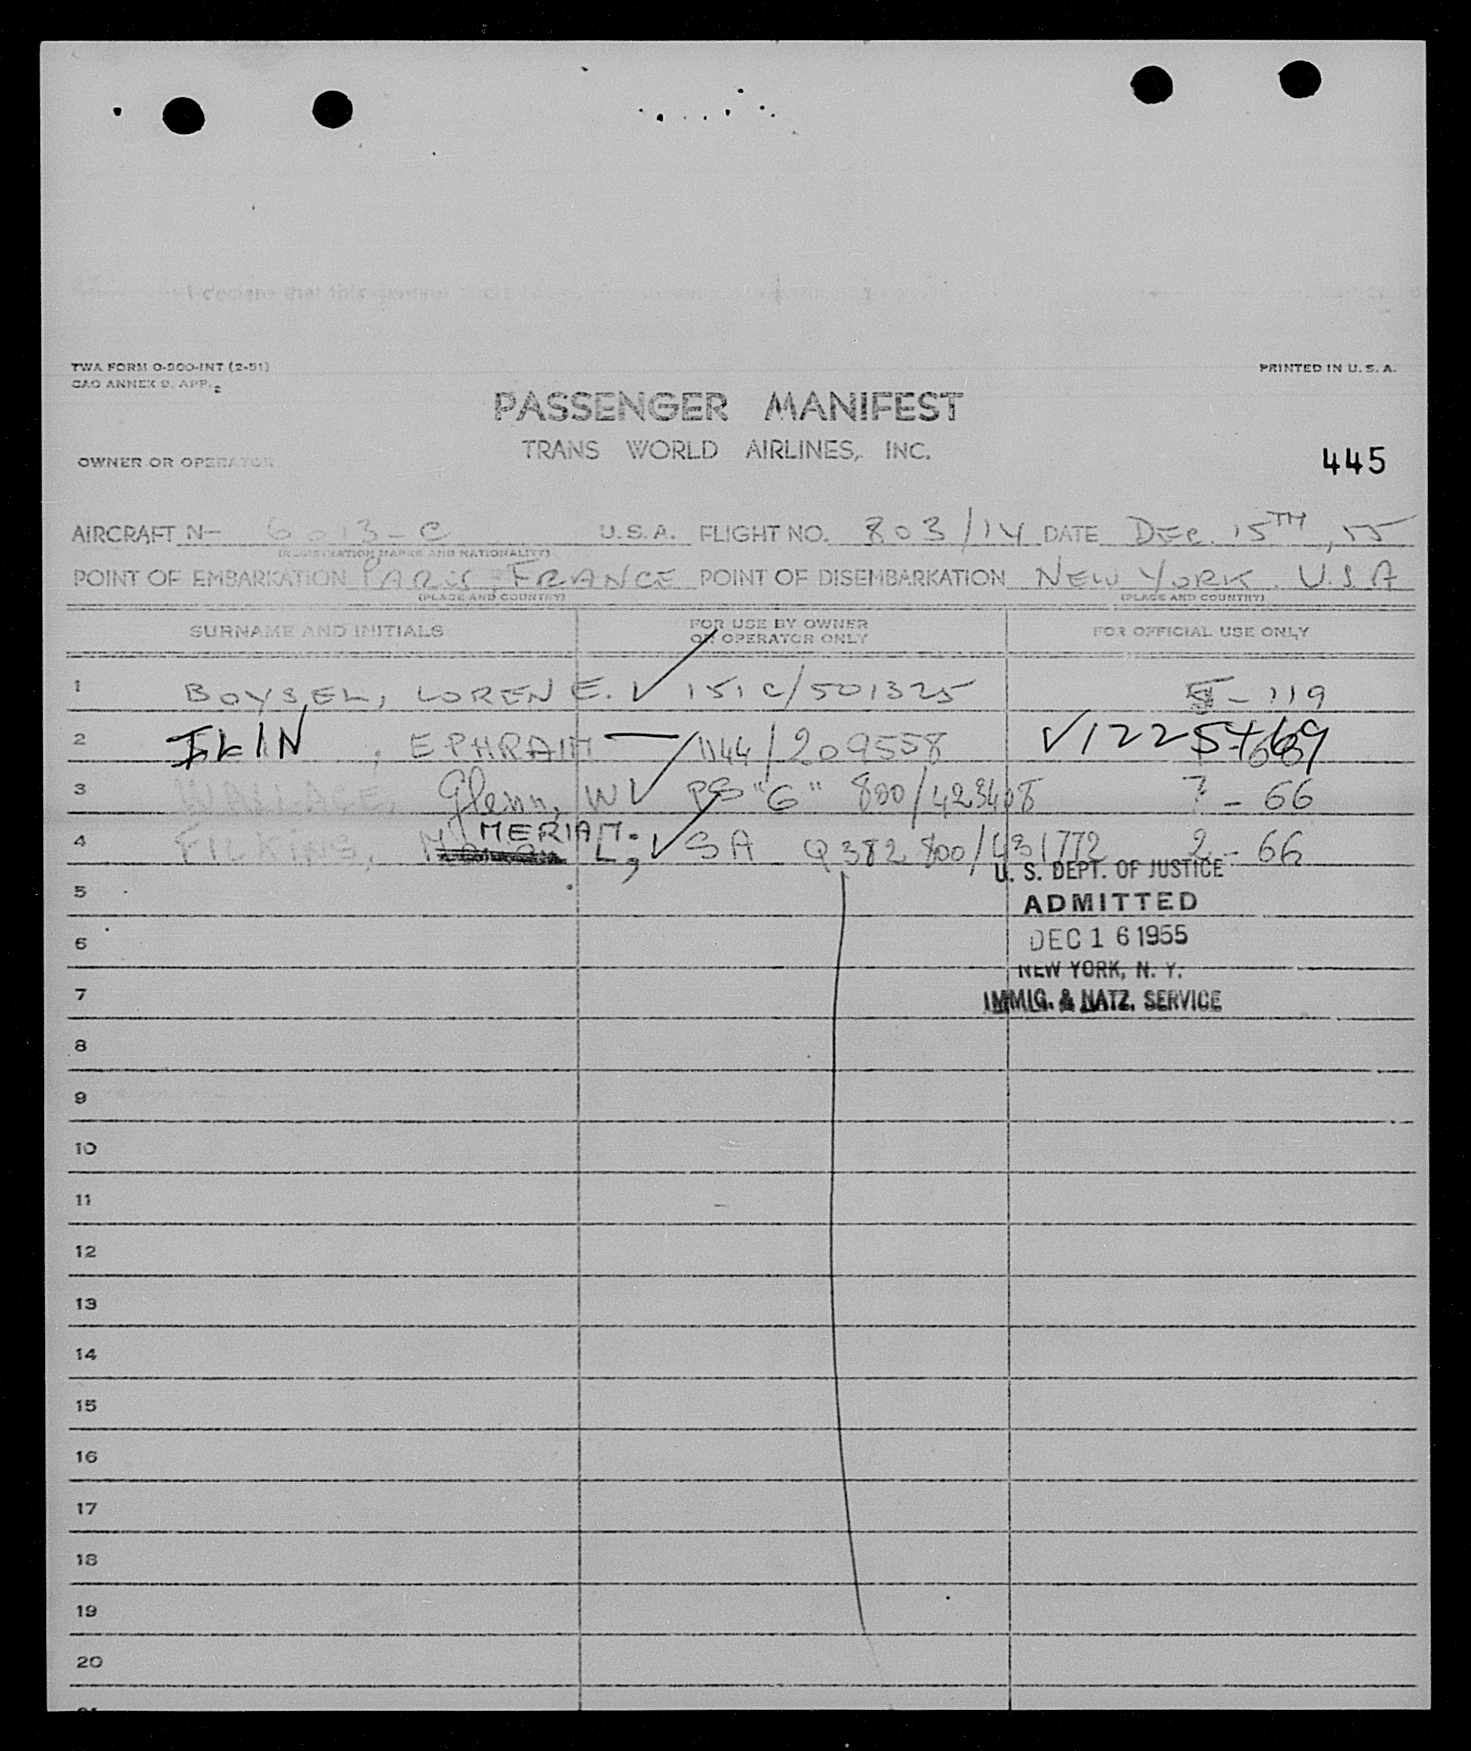 I declare that this
TWA FORM O-900-INT (2-51)
PRINTED IN U. S. A.
CAO ANNEX 9, APP. 2
PASSENGER MANIFEST
TRANS WORLD AIRLINES, INC.
OWNER OR OPERATOR
445
AIRCRAFT N- 6013-C U.S.A. FLIGHT NO. 803/14 DATE DEC. 15TH, 55
(REGISTRATION MARKS AND NATIONALITY)
POINT OF EMBARKATION PARIS - FRANCE POINT OF DISEMBARKATION NEW YORK. U.S.A
(PLACE AND COUNTRY) (PLACE AND COUNTRY)
SURNAME AND INITIALS FOR USE BY OWNER OR OPERATOR ONLY FOR OFFICIAL USE ONLY
1 BOYSEL, LOREN E. ✓ 151C/501325 5 - 119
2 , EPHRAIM 1144/209558
3 WALLACE, Glenn, W ✓ PS "G" 800/423408 ? - 66
4 FILKINS, MERIAM. L, ✓ SA Q382 800/431772 2 - 66
U. S. DEPT. OF JUSTICE
5
ADMITTED
6
DEC 16 1955
NEW YORK, N. Y.
7
IMMIG. & NATZ. SERVICE
8
9
10
11
12
13
14
15
16
17
18
19
20